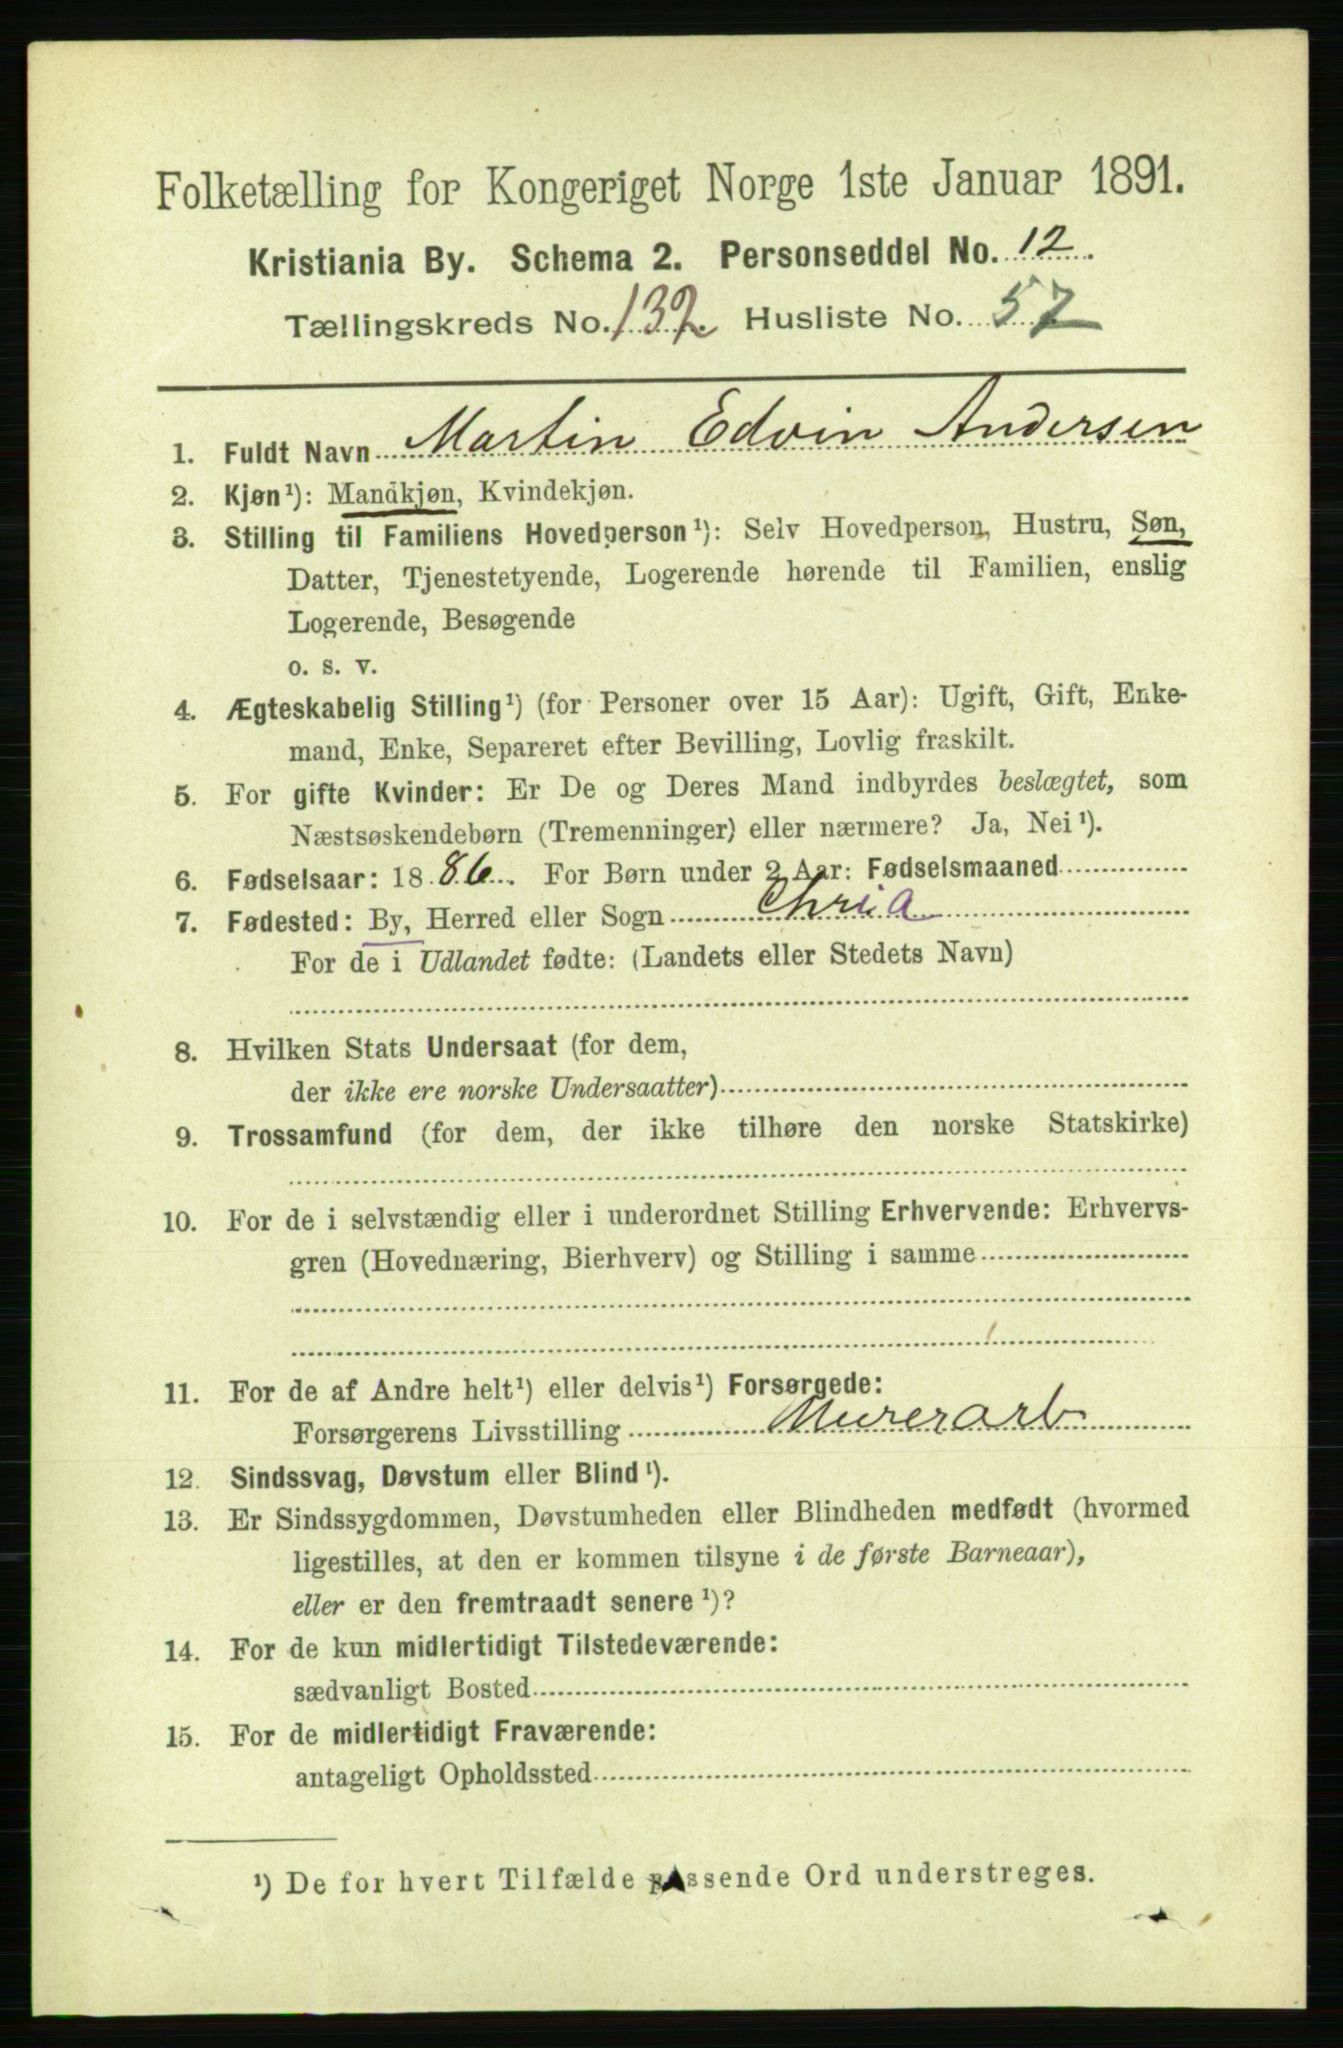 Folketælling for Kongeriget Norge 1ste Januar 1891.
Kristiania By. Schema 2. Personseddel No. 12
Tællingskreds No. 132 Husliste No. 57
1. Fuldt Navn Martin Edvin Andersen
2. Kjøn¹): Mandkjøn, Kvindekjøn.
3. Stilling til Familiens Hovedperson¹): Selv Hovedperson, Hustru, Søn,
Datter, Tjenestetyende, Logerende hørende til Familien, enslig
Logerende, Besøgende
o. s. v.
4. Ægteskabelig Stilling¹) (for Personer over 15 Aar): Ugift, Gift, Enke-
mand, Enke, Separeret efter Bevilling, Lovlig fraskilt.
5. For gifte Kvinder: Er De og Deres Mand indbyrdes beslægtet, som
Næstsøskendebørn (Tremenninger) eller nærmere? Ja, Nei¹).
6. Fødselsaar: 1886. For Børn under 2 Aar: Fødselsmaaned
7. Fødested: By, Herred eller Sogn Chria
For de i Udlandet fødte: (Landets eller Stedets Navn)
8. Hvilken Stats Undersaat (for dem,
der ikke ere norske Undersaatter)
9. Trossamfund (for dem, der ikke tilhøre den norske Statskirke)
10. For de i selvstændig eller i underordnet Stilling Erhvervende: Erhvervs-
gren (Hovednæring, Bierhverv) og Stilling i samme
11. For de af Andre helt¹) eller delvis¹) Forsørgede:
Forsørgerens Livsstilling Murerarb
12. Sindssvag, Døvstum eller Blind¹).
13. Er Sindssygdommen, Døvstumheden eller Blindheden medfødt (hvormed
ligestilles, at den er kommen tilsyne i de første Barneaar),
eller er den fremtraadt senere¹)?
14. For de kun midlertidigt Tilstedeværende:
sædvanligt Bosted
15. For de midlertidigt Fraværende:
antageligt Opholdssted
¹) De for hvert Tilfælde passende Ord understreges.